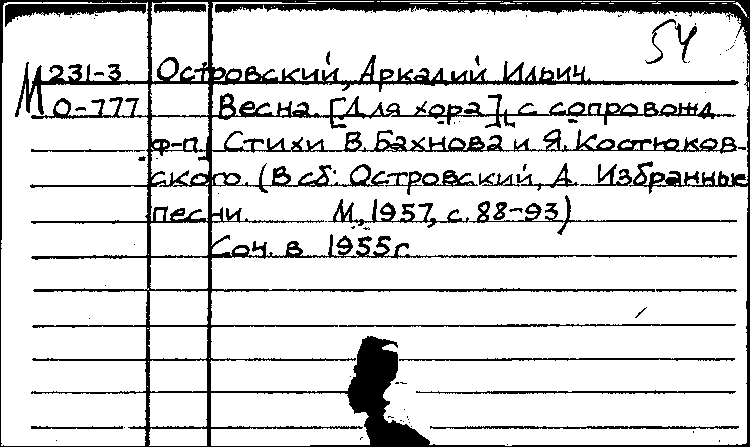 54
М 231-3 Островский, Аркадий Ильич.
О-777 Весна. [Для хора], с сопровожд
ф-п] Стихи В. Бахнова и Я. Костюков-
ского. (В сб: Островский, А. Избранные
песни. М, 1957, с. 88-93)
Соч. в 1955г.